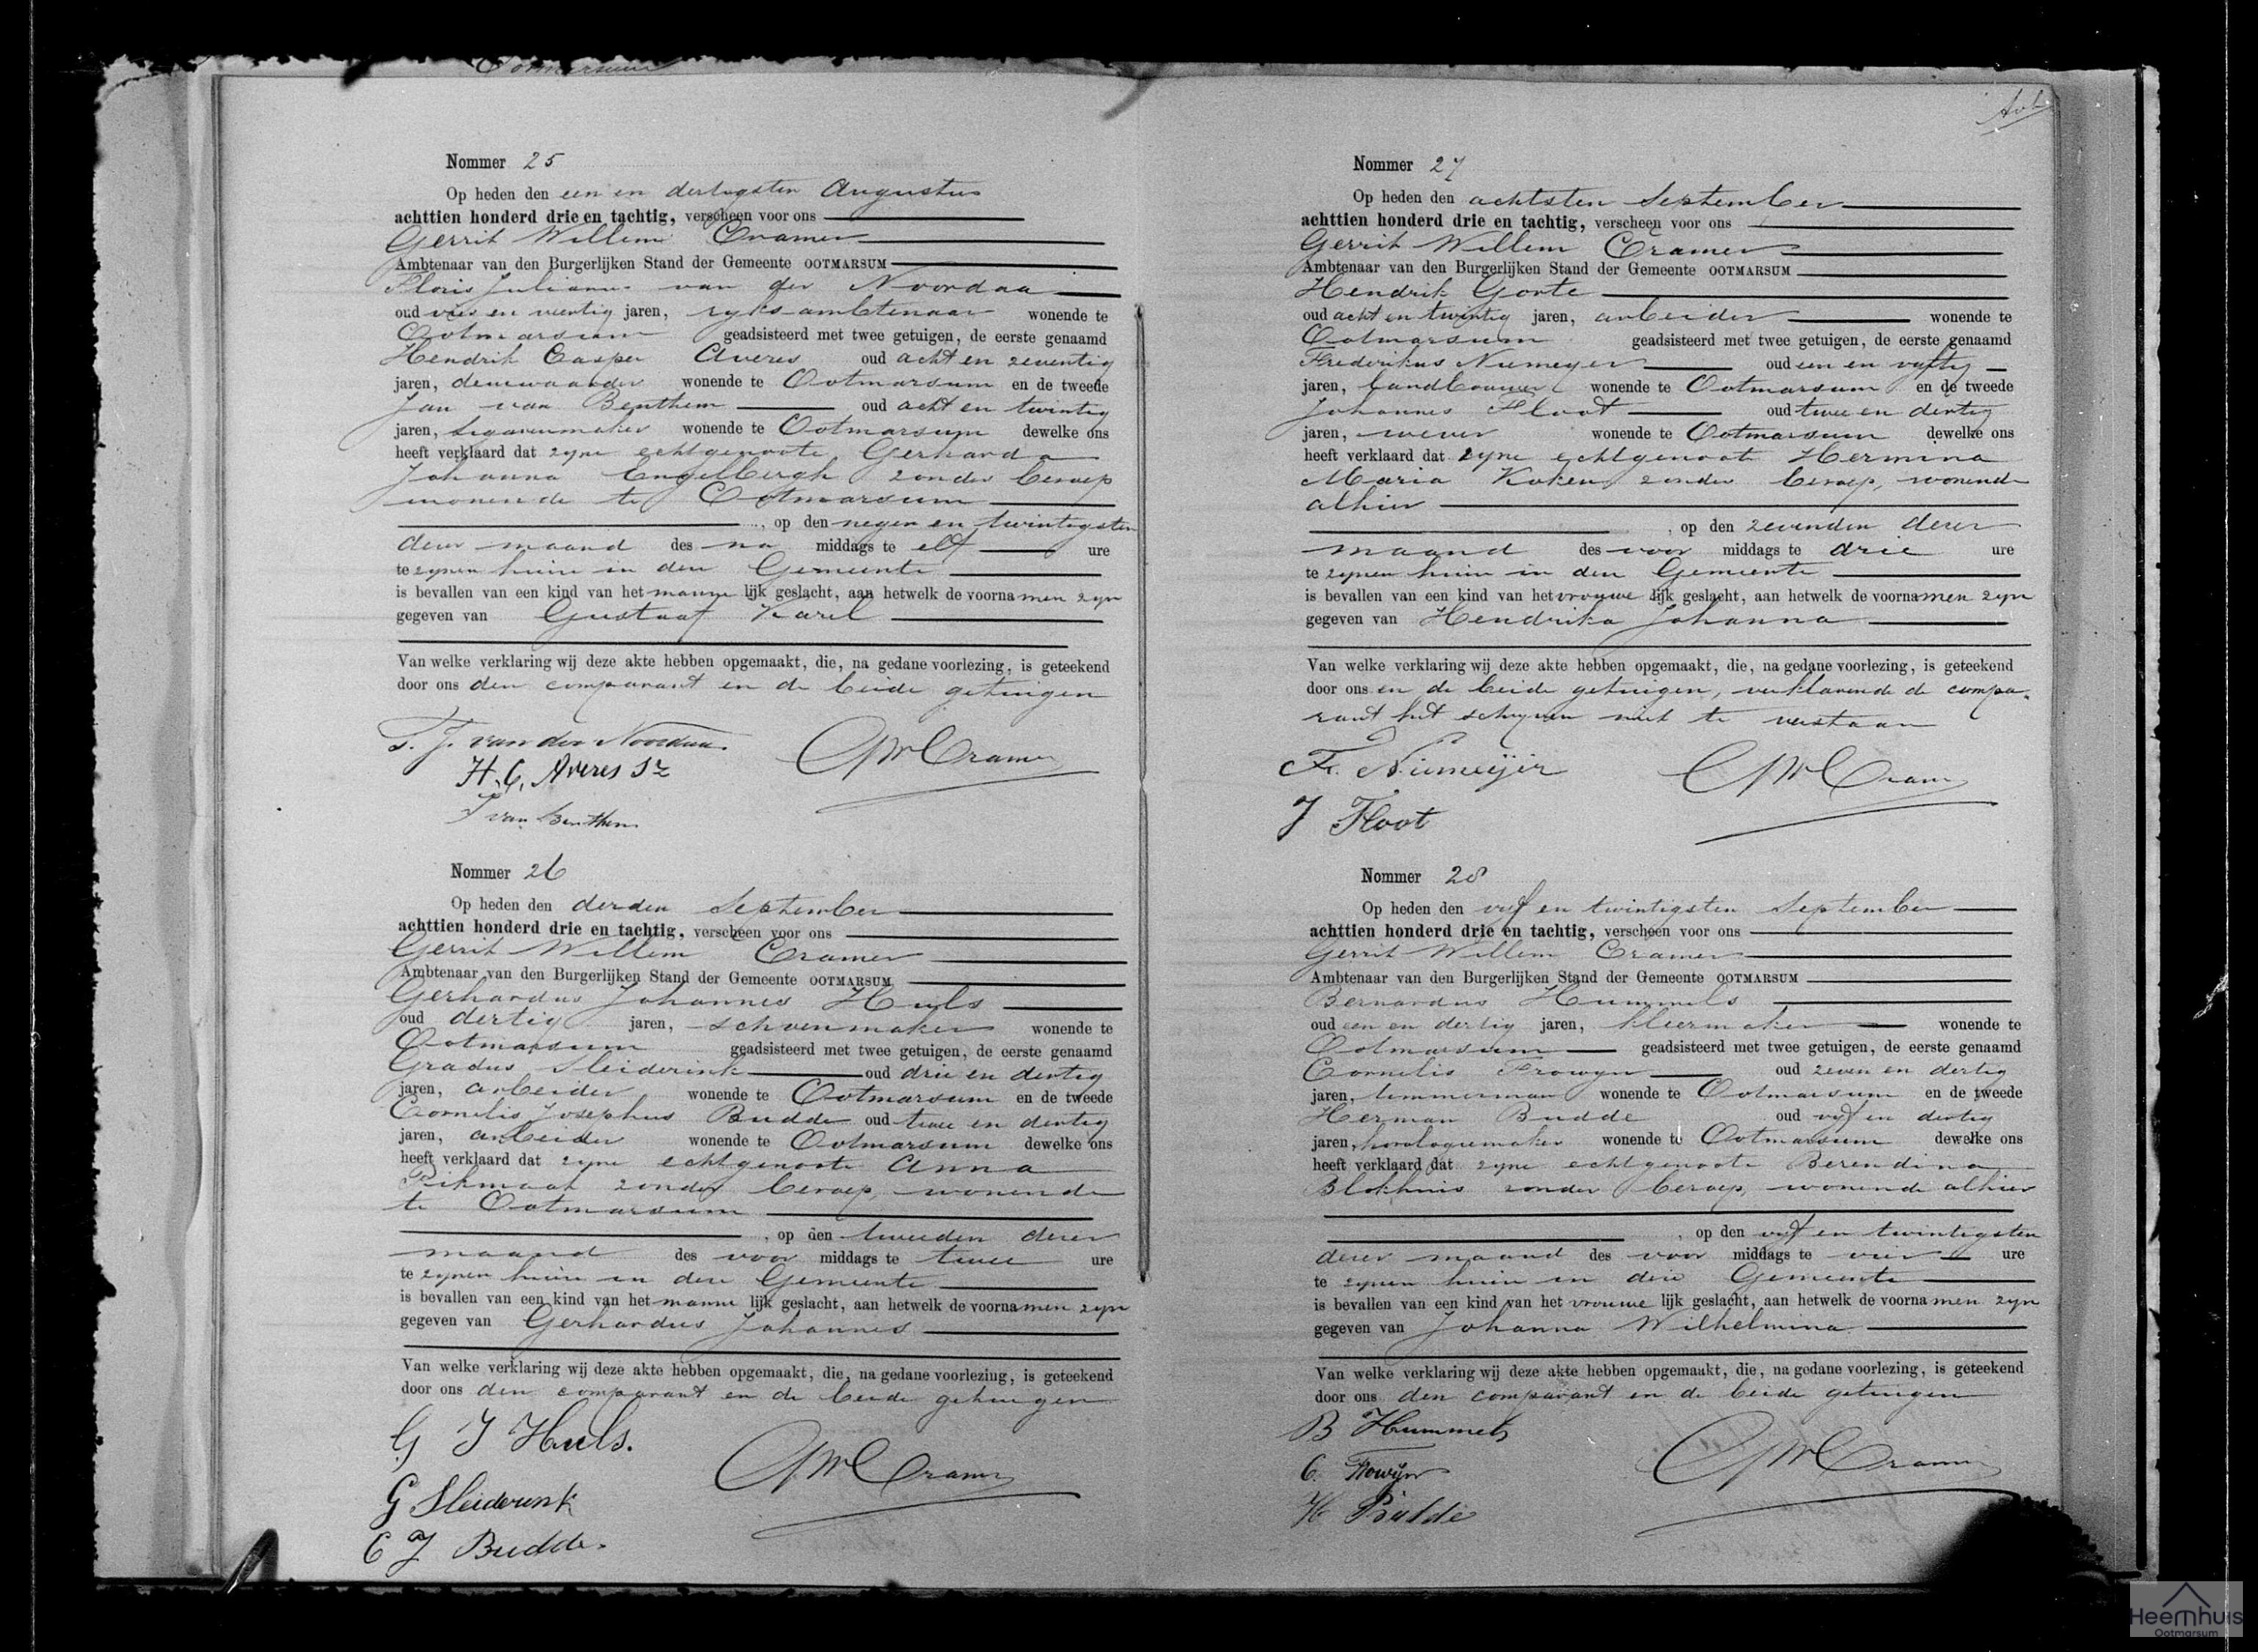 Ootmarsum
Nommer 25
Op heden den een en dertigsten Augustus
achttien honderd drie en tachtig, verscheen voor ons
Gerrit Willem Cramer
Ambtenaar van den Burgerlijken Stand der Gemeente OOTMARSUM
Floris Julianus van der Noordaa
oud vier en veertig jaren, ryksambtenaar wonende te
Ootmarsum geadsisteerd met twee getuigen, de eerste genaamd
Hendrik Casper Averes oud acht en zeventig
jaren, deurwaarder wonende te Ootmarsum en de tweede
Jan van Benthem oud acht en twintig
jaren, sigarenmaker wonende te Ootmarsum dewelke ons
heeft verklaard dat zyne echtgenoote Gerharda
Johanna Engelbergh zonder beroep
wonende te Ootmarsum
, op den negen en twintigsten
dezer maand des na middags te elf ure
te zynen huize in deze Gemeente
is bevallen van een kind van het manne lijk geslacht, aan hetwelk de voornamen zyn
gegeven van Gustaaf Karel
Van welke verklaring wij deze akte hebben opgemaakt, die, na gedane voorlezing, is geteekend
door ons den comparant en de beide getuigen
F. J. van der Noordaa.
GWCramer
H. C. Averes Sz
J van Benthem
Nommer 26
Op heden den derden September
achttien honderd drie en tachtig, verscheen voor ons
Gerrit Willem Cramer
Ambtenaar van den Burgerlijken Stand der Gemeente OOTMARSUM
Gerhardus Johannes Huls
oud dertig jaren, schoenmaker wonende te
Ootmarsum geadsisteerd met twee getuigen, de eerste genaamd
Gradus Sleiderink oud drie en dertig
jaren, arbeider wonende te Ootmarsum en de tweede
Cornelis Josephus Budde oud twee en dertig
jaren, arbeider wonende te Ootmarsum dewelke ons
heeft verklaard dat zyne echtgenoote Anna
Pikmaat zonder beroep, wonende
te Ootmarsum
, op den tweeden dezer
maand des voor middags te twee ure
te zynen huize in deze Gemeente
is bevallen van een kind van het manne lijk geslacht, aan hetwelk de voornamen zyn
gegeven van Gerhardus Johannes
Van welke verklaring wij deze akte hebben opgemaakt, die, na gedane voorlezing, is geteekend
door ons den comparant en de beide getuigen
G J Huls.
GWCramer
G Sleiderink
C J Budde.
Nommer 27
Op heden den achtsten September
achttien honderd drie en tachtig, verscheen voor ons
Gerrit Willem Cramer
Ambtenaar van den Burgerlijken Stand der Gemeente OOTMARSUM
Hendrik Gorte
oud acht en twintig jaren, arbeider wonende te
Ootmarsum geadsisteerd met twee getuigen, de eerste genaamd
Frederikus Niemeyer oud een en vyftig
jaren, landbouwer wonende te Ootmarsum en de tweede
Johannes Floot oud twee en dertig
jaren, wever wonende te Ootmarsum dewelke ons
heeft verklaard dat zyne echtgenoote Hermina
Maria Koken zonder beroep, wonende
alhier
, op den zevenden dezer
maand des voor middags te drie ure
te zynen huize in deze Gemeente
is bevallen van een kind van het vrouwe lijk geslacht, aan hetwelk de voornamen zyn
gegeven van Hendrika Johanna
Van welke verklaring wij deze akte hebben opgemaakt, die, na gedane voorlezing, is geteekend
door ons en de beide getuigen, verklarende de compa-
rant het schryven niet te verstaan
Fr. Niemeijer
GWCramer
J Floot
Nommer 28
Op heden den vyf en twintigsten September
achttien honderd drie en tachtig, verscheen voor ons
Gerrit Willem Cramer
Ambtenaar van den Burgerlijken Stand der Gemeente OOTMARSUM
Bernardus Hummels
oud een en dertig jaren, kleermaker wonende te
Ootmarsum geadsisteerd met twee getuigen, de eerste genaamd
Cornelis Frowyn oud zeven en dertig
jaren, timmerman wonende te Ootmarsum en de tweede
Herman Budde oud vyf en dertig
jaren, horologiemaker wonende te Ootmarsum dewelke ons
heeft verklaard dat zyne echtgenoote Berendina
Blokhuis zonder beroep, wonende alhier
, op den vyf en twintigsten
dezer maand des voor middags te vier ure
te zynen huize in deze Gemeente
is bevallen van een kind van het vrouwe lijk geslacht, aan hetwelk de voornamen zyn
gegeven van Johanna Wilhelmina
Van welke verklaring wij deze akte hebben opgemaakt, die, na gedane voorlezing, is geteekend
door ons den comparant en de beide getuigen
B Hummels
GWCramer
C. Frowijn
H Budde
Heemhuis
Ootmarsum